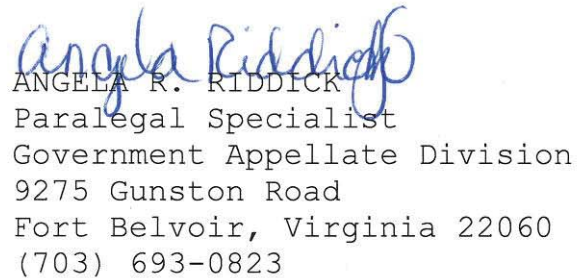 Angela Riddick
ANGELA R. RIDDICK
Paralegal Specialist
Government Appellate Division
9275 Gunston Road
Fort Belvoir, Virginia 22060
(703) 693-0823